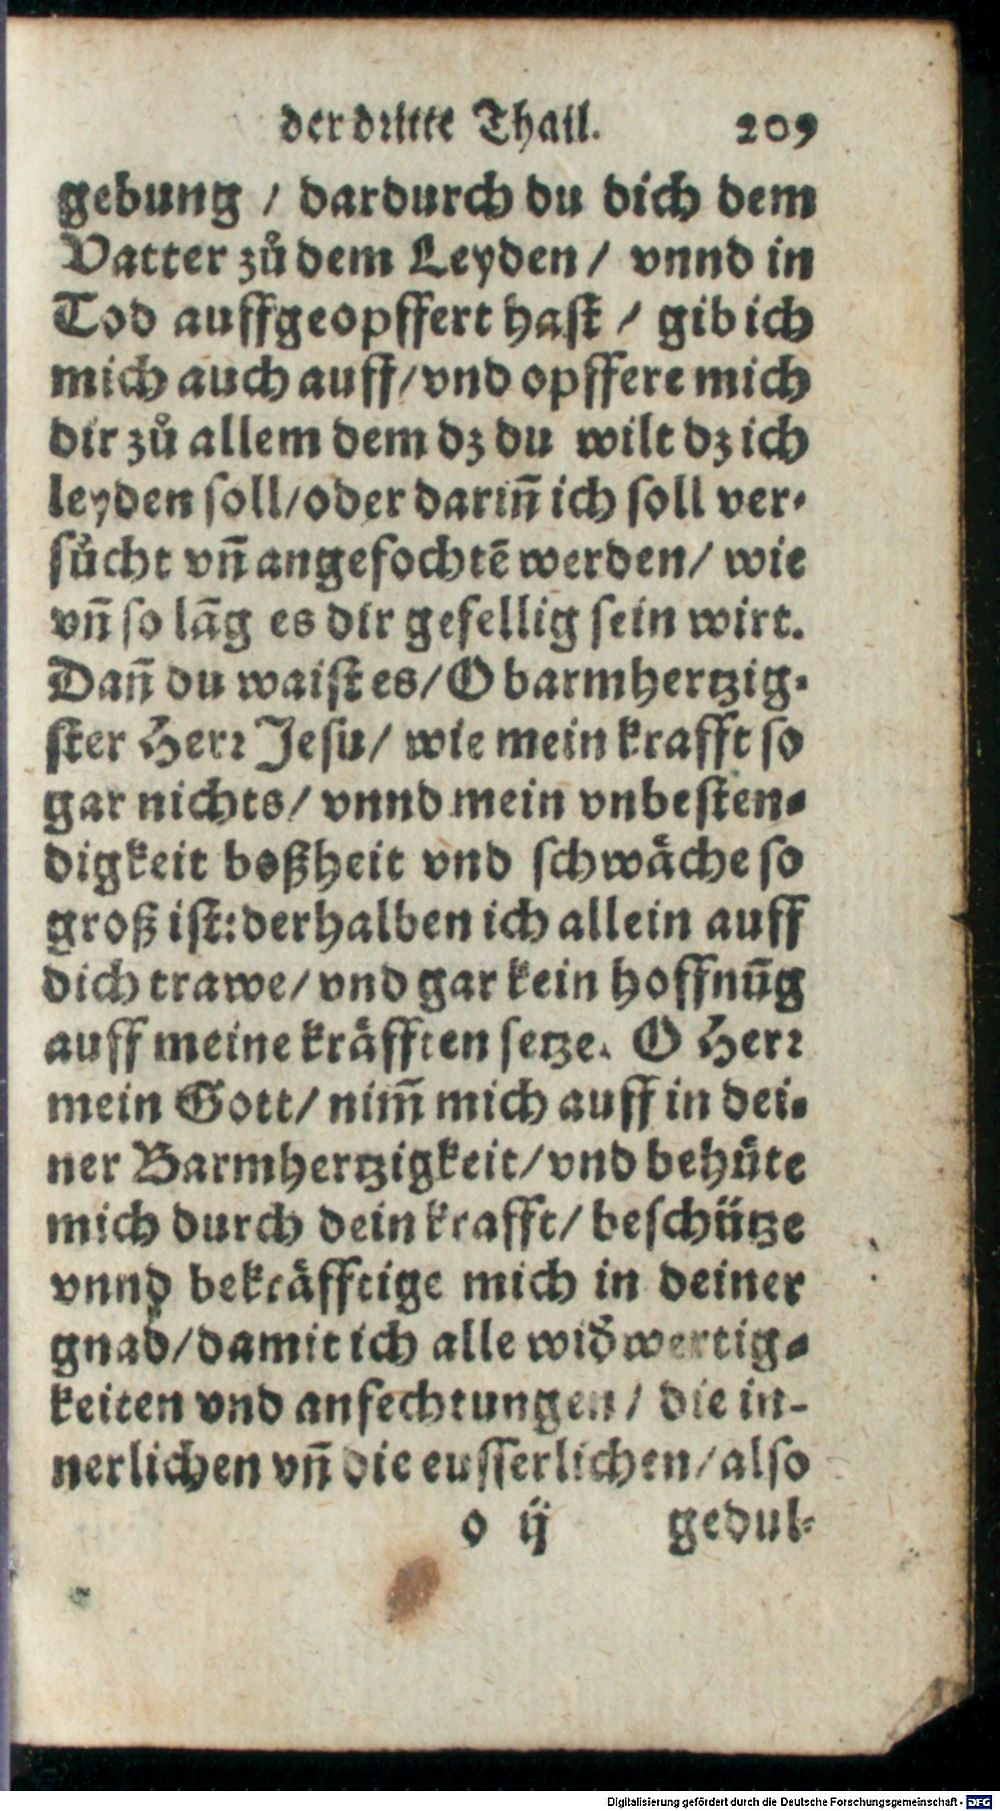 der dritte Thail. 209
gebung / dardurch du dich dem
Vatter zů dem Leyden / vnnd in
Tod auffgeopffert hast / gib ich
mich auch auff / vnd opffere mich
dir zů allem dem dz du wilt dz ich
leyden soll / oder darin̄ ich soll ver-
sůcht vn̄ angefochtē werden / wie
vn̄ so lāg es dir gefellig sein wirt.
Dan̄ du waist es / O barmhertzig-
ster Herr Jesu / wie mein krafft so
gar nichts / vnnd mein vnbesten-
digkeit boßheit vnd schwäche so
groß ist: derhalben ich allein auff
dich trawe / vnd gar kein hoffnūg
auff meine kräfften setze. O Herr
mein Gott / nim̄ mich auff in dei-
ner Barmhertzigkeit / vnd behüte
mich durch dein krafft / beschütze
vnnd bekräfftige mich in deiner
gnad / damit ich alle wid̕wertig-
keiten vnd anfechtungen / die in-
nerlichen vn̄ die eusserlichen / also
o ij gedul-
Digitalisierung gefördert durch die Deutsche Forschungsgemeinschaft - DFG